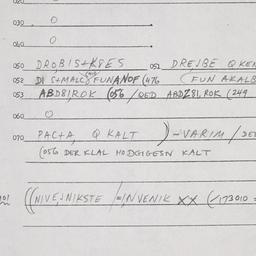 030 O
040 O
050 DROBIS+K8ES 051 DREJBE QKEN
052 DI S+MALC FUNANOF (476 (FUN AKALB
053 ABD81,ROK (056 / QED ABDZ81,ROK (249
060 O
070 PAC+A, Q KALT ) -VARIM / DET
(056 DER KLAL HODGIGESN KALT
((NIVE,+NIKSTE /=INVENIK XX (/173010 =